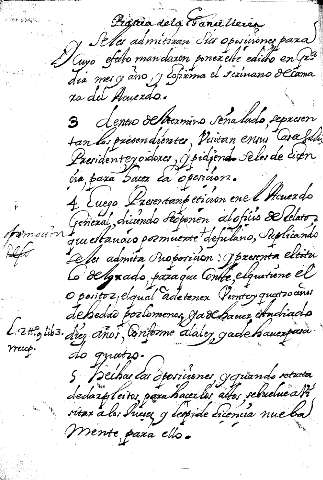 Pratica de la Chancilleria
Se les admitiran sus oposiciones para
cuyo efeto mandaron poner este edito en
dia mes y año, y lo firma el scrivano de Cama
ra del Acuerdo.
3 dentro del termino señalado, se presen
tan los pretendientes, Visitan en sus Casas
Presidente y odores, y piden se les de licen
cia, para hacer la oposicion.
4. Luego Presentan peticion en el Acuerdo
General, diciendo se oponen al oficio de Relator
que esta vaco por muerte de fulano, Suplicando
se les admita su oposicion: y presenta el titu
lo de grado, para que conste, el que tiene el
opositor, el qual a de tener Veinte y quatro años
de hedad por lo menos, y a de haver estudiado
L. 2 tit. 9 lib 3.
recop.
diez años, Conforme a la ley, y a de haver pasa
do quatro.
5 hechas las oposiciones, y quando se trata
de dar pleitos, para hacer los actos, se buelve a Vi
sitar a los Jueces y se pide licencia nueba
mente para ello.